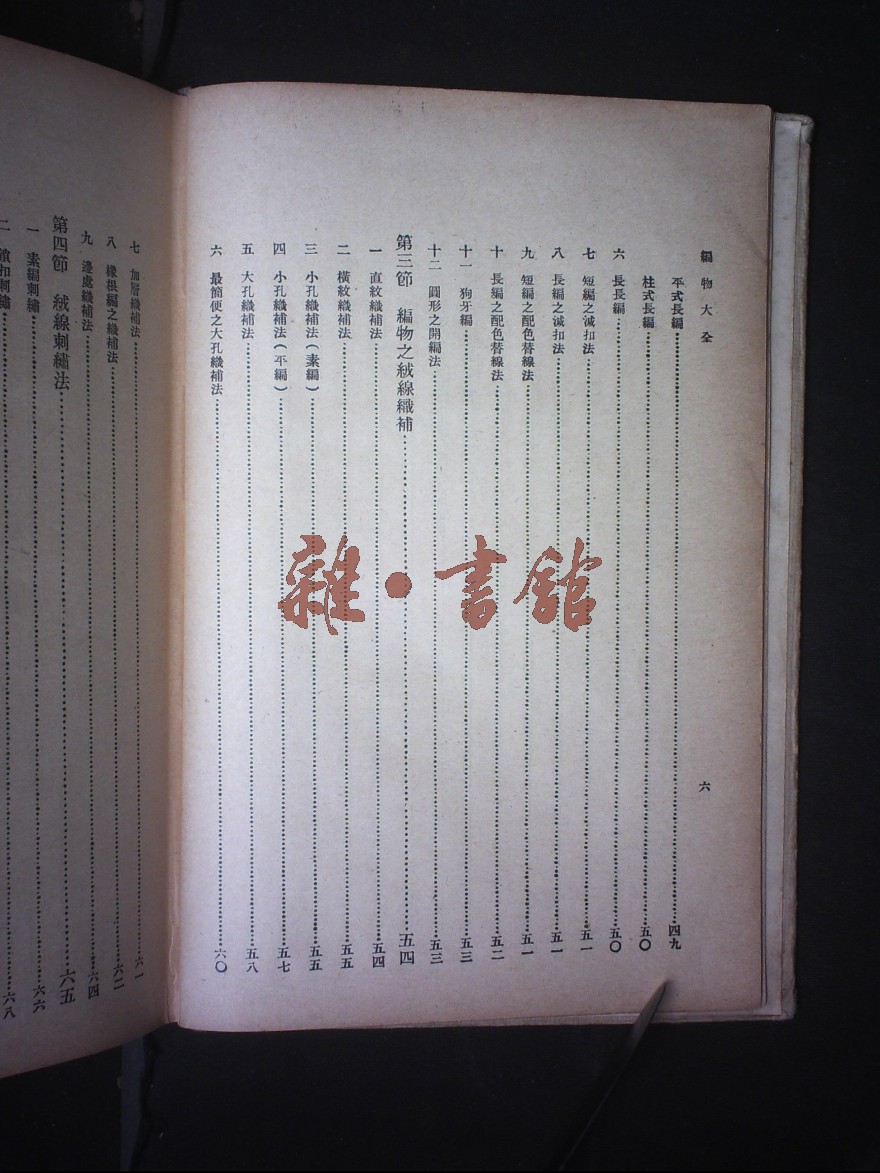 編物大全
六
平式長編………四九
柱式長編………五〇
六　長長編………五〇
七　短編之減扣法………五一
八　長編之減扣法………五一
九　短編之配色替線法………五一
十　長編之配色替線法………五二
十一　狗牙編………五三
十二　圓形之開編法………五三
第三節　編物之絨線織補………五四
一　直紋織補法………五四
二　橫紋織補法………五五
三　小孔織補法（素編）………五五
四　小孔織補法（平編）………五七
五　大孔織補法………五八
六　最簡便之大孔織補法………六〇
七　加層織補法………六一
八　橡根編之織補法………六二
九　邊處織補法………六四
第四節　絨線刺繡法………六五
一　素編刺繡………六六
二　鎖扣刺繡………六八
雜·書館